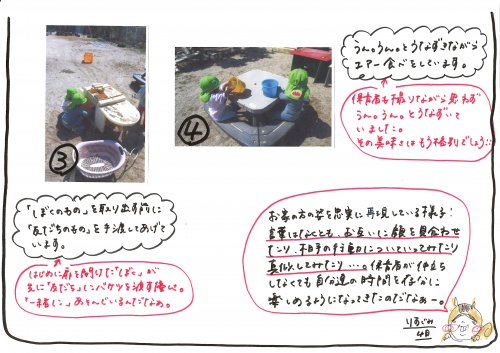 うん。うん。とうなずきながら
エアー食べをしています。
保育者も撮りながら思わず
うん。うん。とうなずいて
いました。
その美味さはもう格別でしょう!!
③
④
「しぼくのもの」を取り出す前に
「友だちのもの」を手渡してあげて
います。
はじめに扉を開けた「しぼく」が
先に「友だち」にバケツを渡す優しさ。
「一緒に」あそんでいるんだなぁ。
お家の方の姿を忠実に再現している様子!
言葉はなくとも、お互いに顔を見合わせ
たり、相手の行動についていってみたり
真似してみたり…。保育者が仲立ち
しなくても自分達の時間をそれなりに
楽しめるようになってきたのだなぁー。
りすぐみ
4月